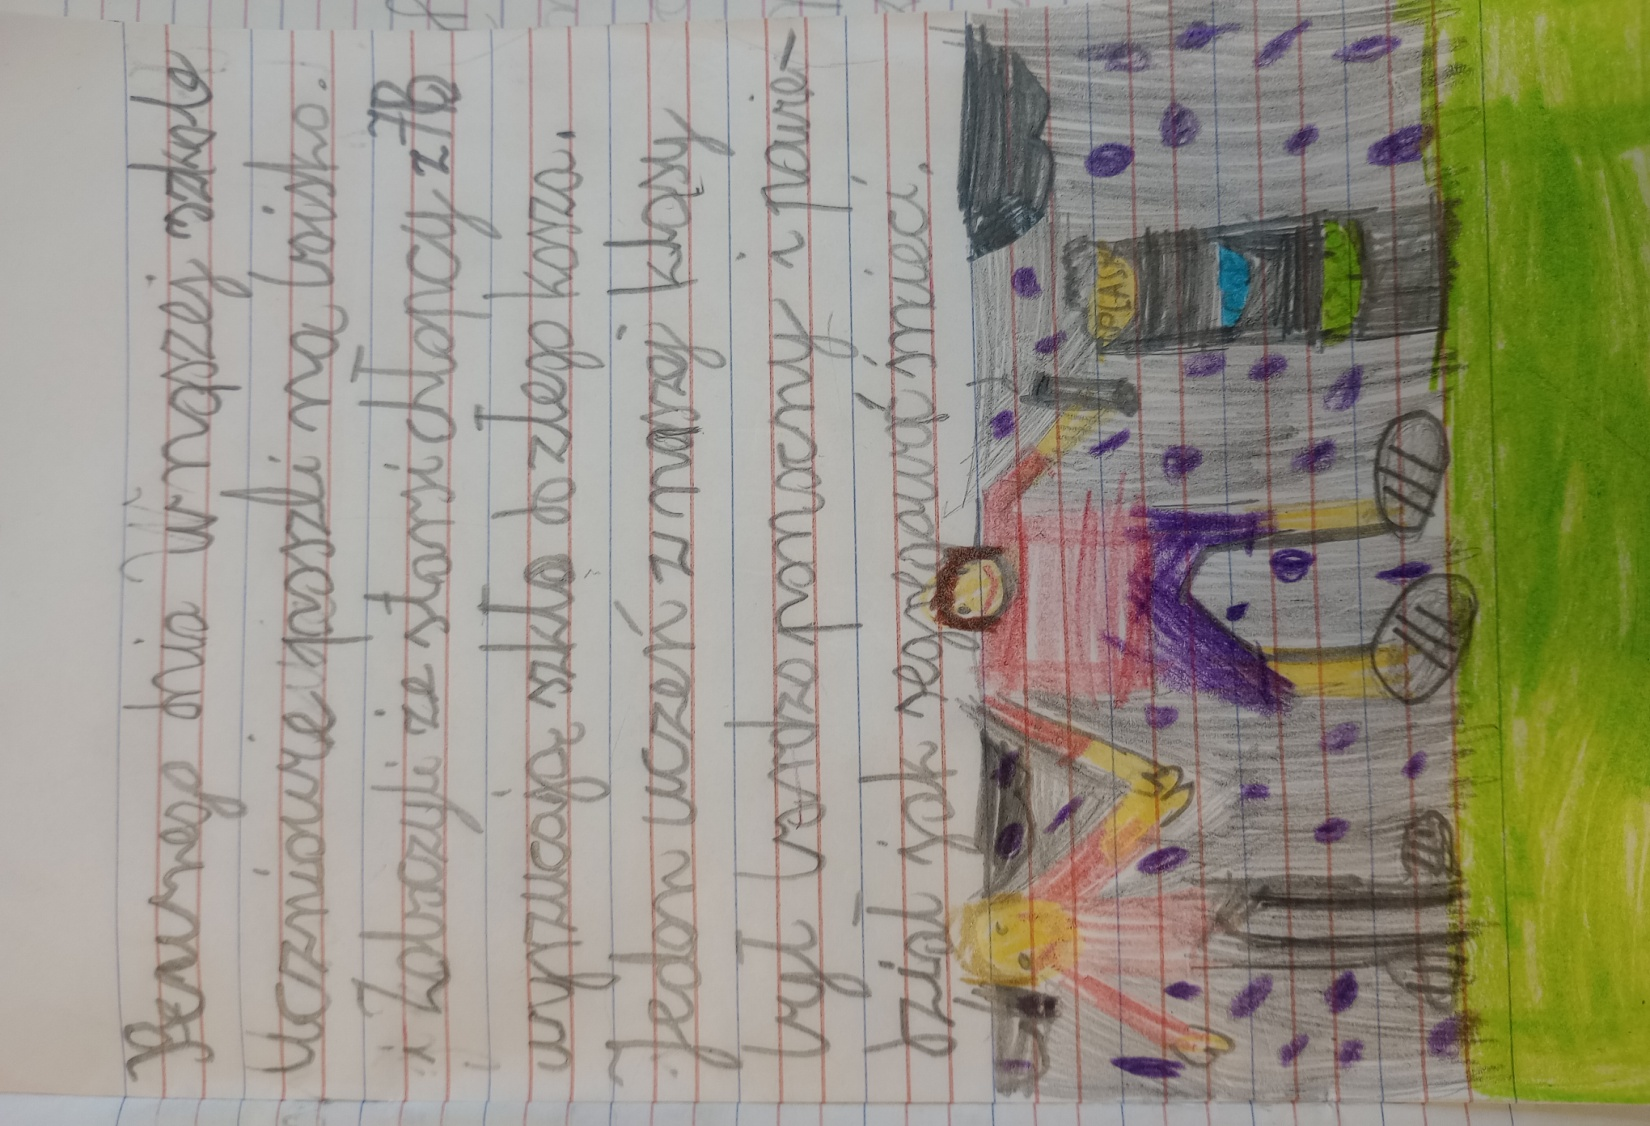 Pewnego dnia w naszej szkole
Uczniowie poszli na boisko.
i Zobaczyli że starsi chłopcy z 7B
wyrzucają szkło do złego kosza.
Jeden uczeń z naszej klasy
był bardzo pomocny i powie-
dział jak segregować śmieci.
PLAS